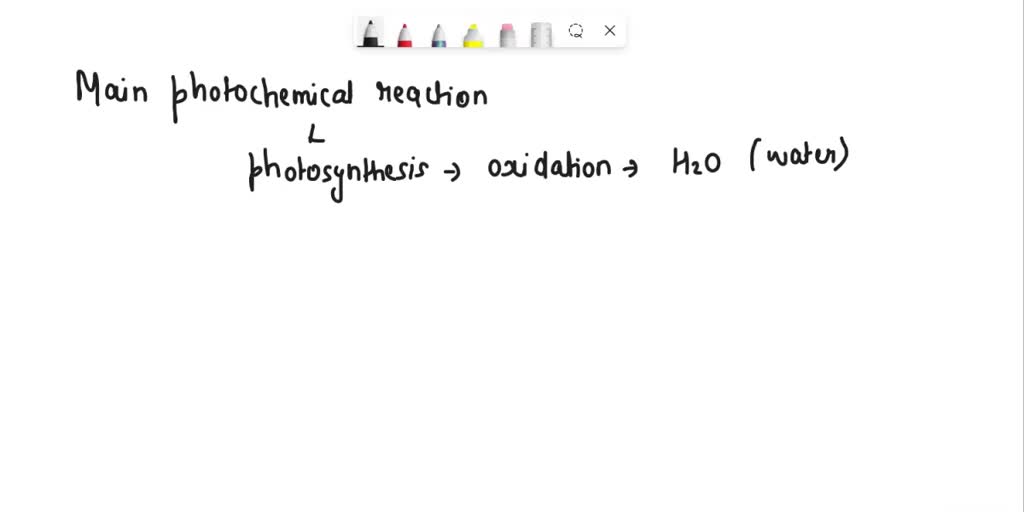 Main photochemical reaction
photosynthesis → oxidation → H₂O (water)